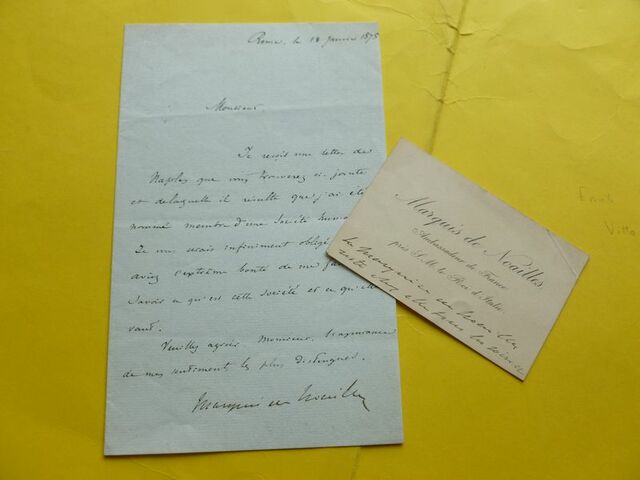 Rome, le 18 Janvier 1875
Monsieur,
Je reçois une lettre de
Naples que vous trouverez ci-jointe
et de laquelle il résulte que j'ai été
nommé membre d'une Société
Je vous serais infiniment obligé
aviez l'extrême bonté de me
savoir ce qu'est cette société et ce qu'elle
vaut.
Veuillez agréer Monsieur, l'assurance
de mes sentiments les plus distingués.
Marquis de Noailles
Marquis de Noailles
Ambassadeur de France
près S. M. le Roi d'Italie
La Marquise de Noailles
reste chez elle tous les